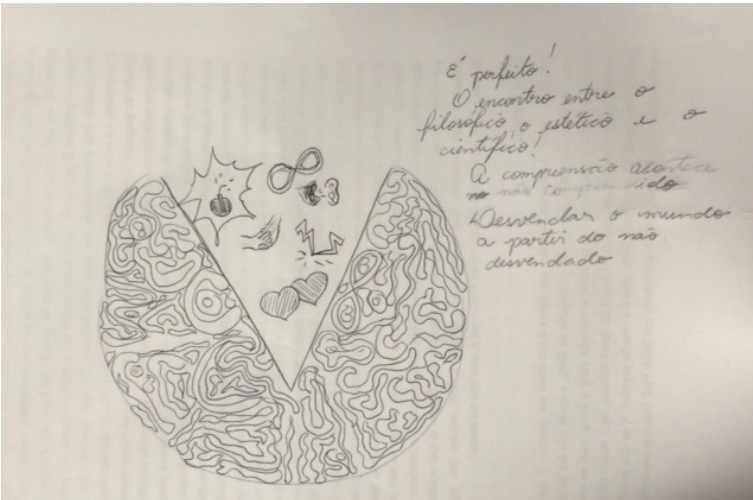 É perfeito!
O encontro entre o
filosófico, o estético e o
científico!
A compreensão acontece
no não compreendido
Desvendar o mundo
a partir do não
desvendado